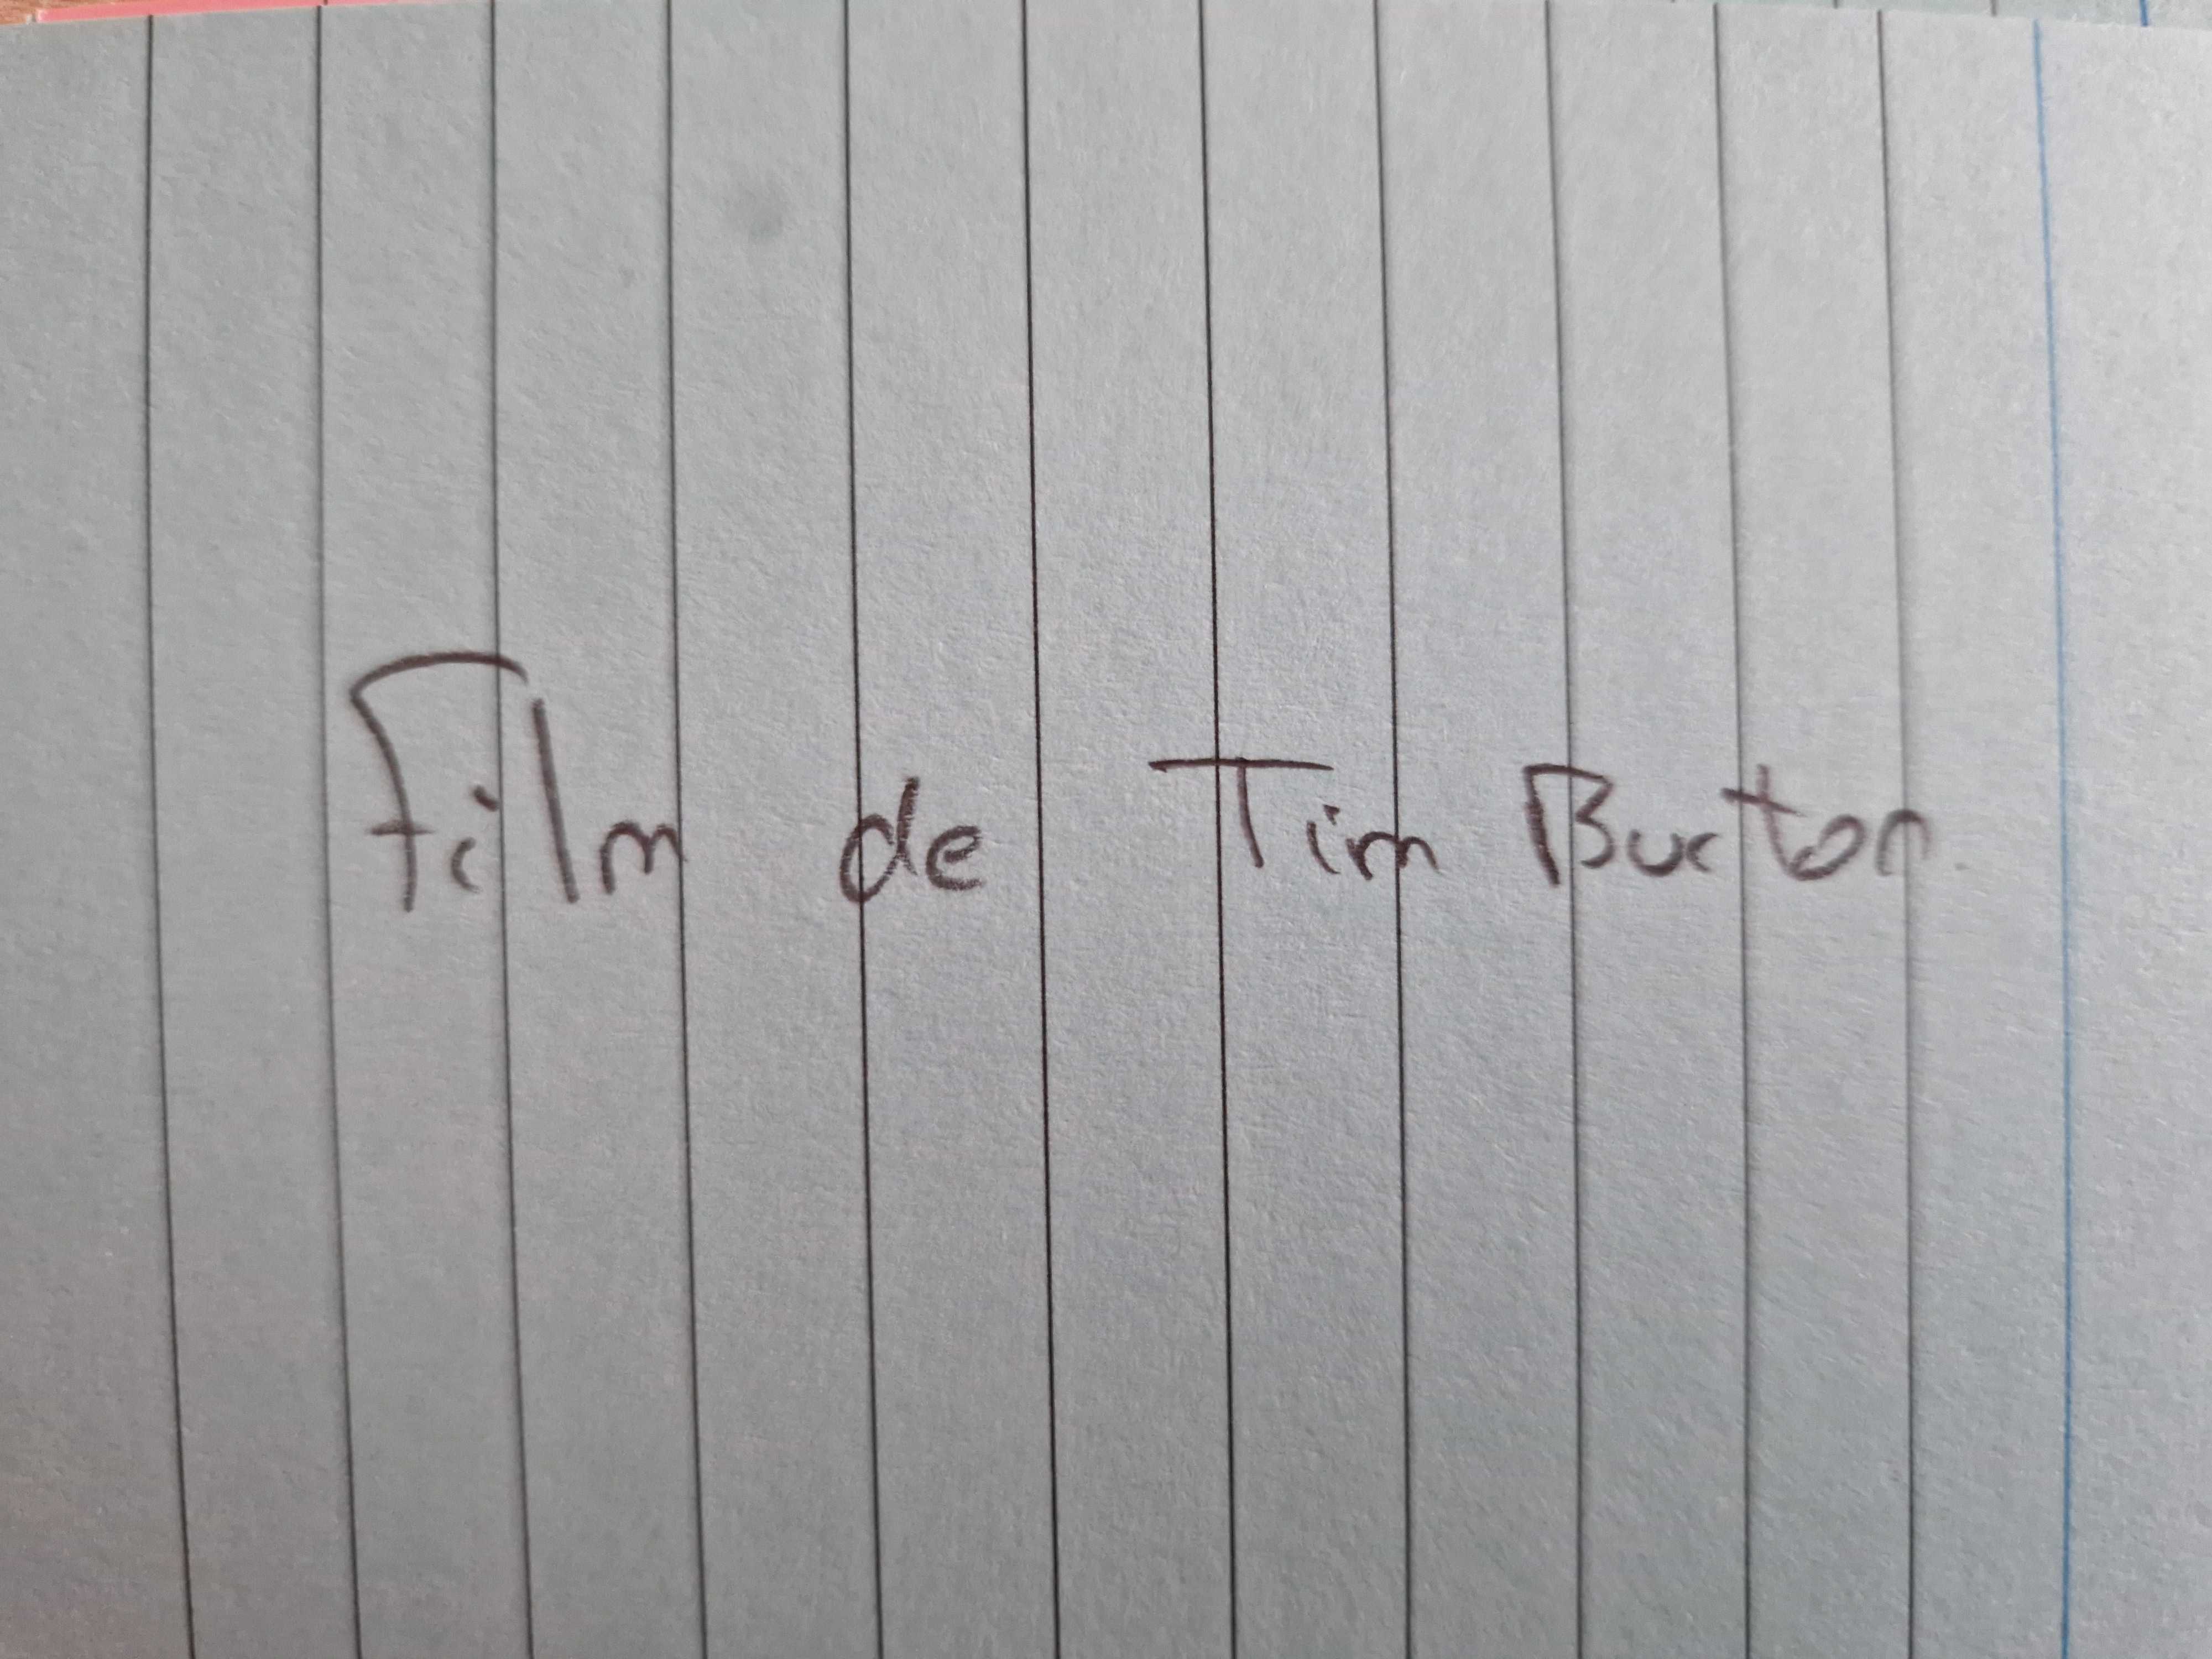 Film de Tim Burton